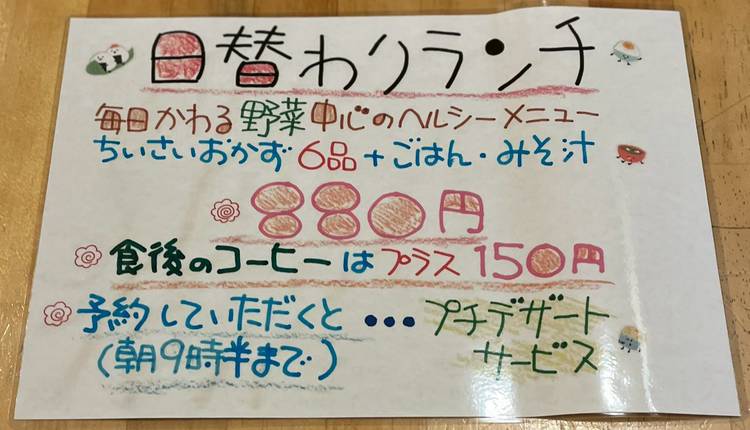 日替わりランチ
毎日かわる野菜中心のヘルシーメニュー
ちいさいおかず6品+ごはん・みそ汁
880円
食後のコーヒーはプラス150円
予約していただくと・・・プチデザート
(朝9時半まで) サービス